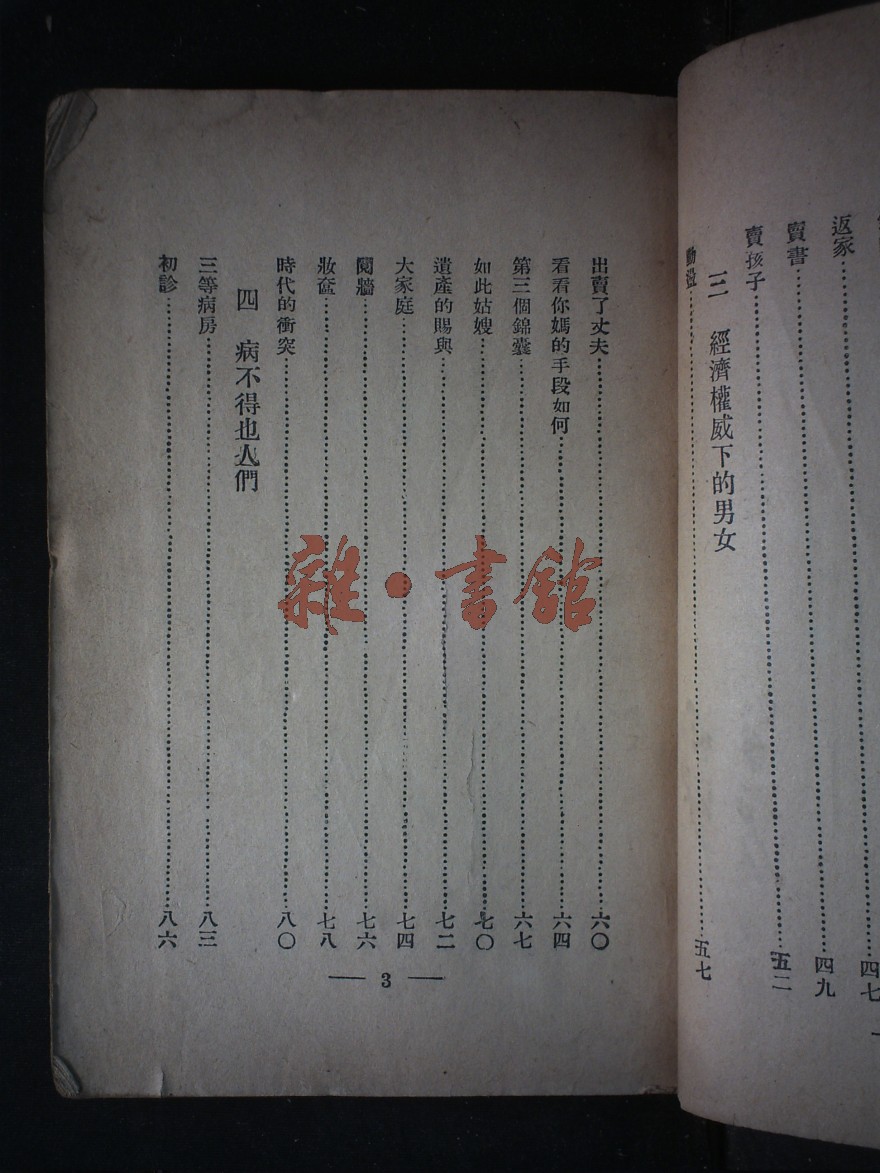 返家……四七
賣書……四九
賣孩子……五二
三 經濟權威下的男女
五七
出賣了丈夫……六〇
看看你媽的手段如何……六四
第三個錦囊……六七
如此姑嫂……七〇
遺產的賜與……七二
大家庭……七四
鬩牆……七六
妝奩……七八
時代的衝突……八〇
四 病不得也人們
三等病房……八三
初診……八六
— 3 —
雜·書館